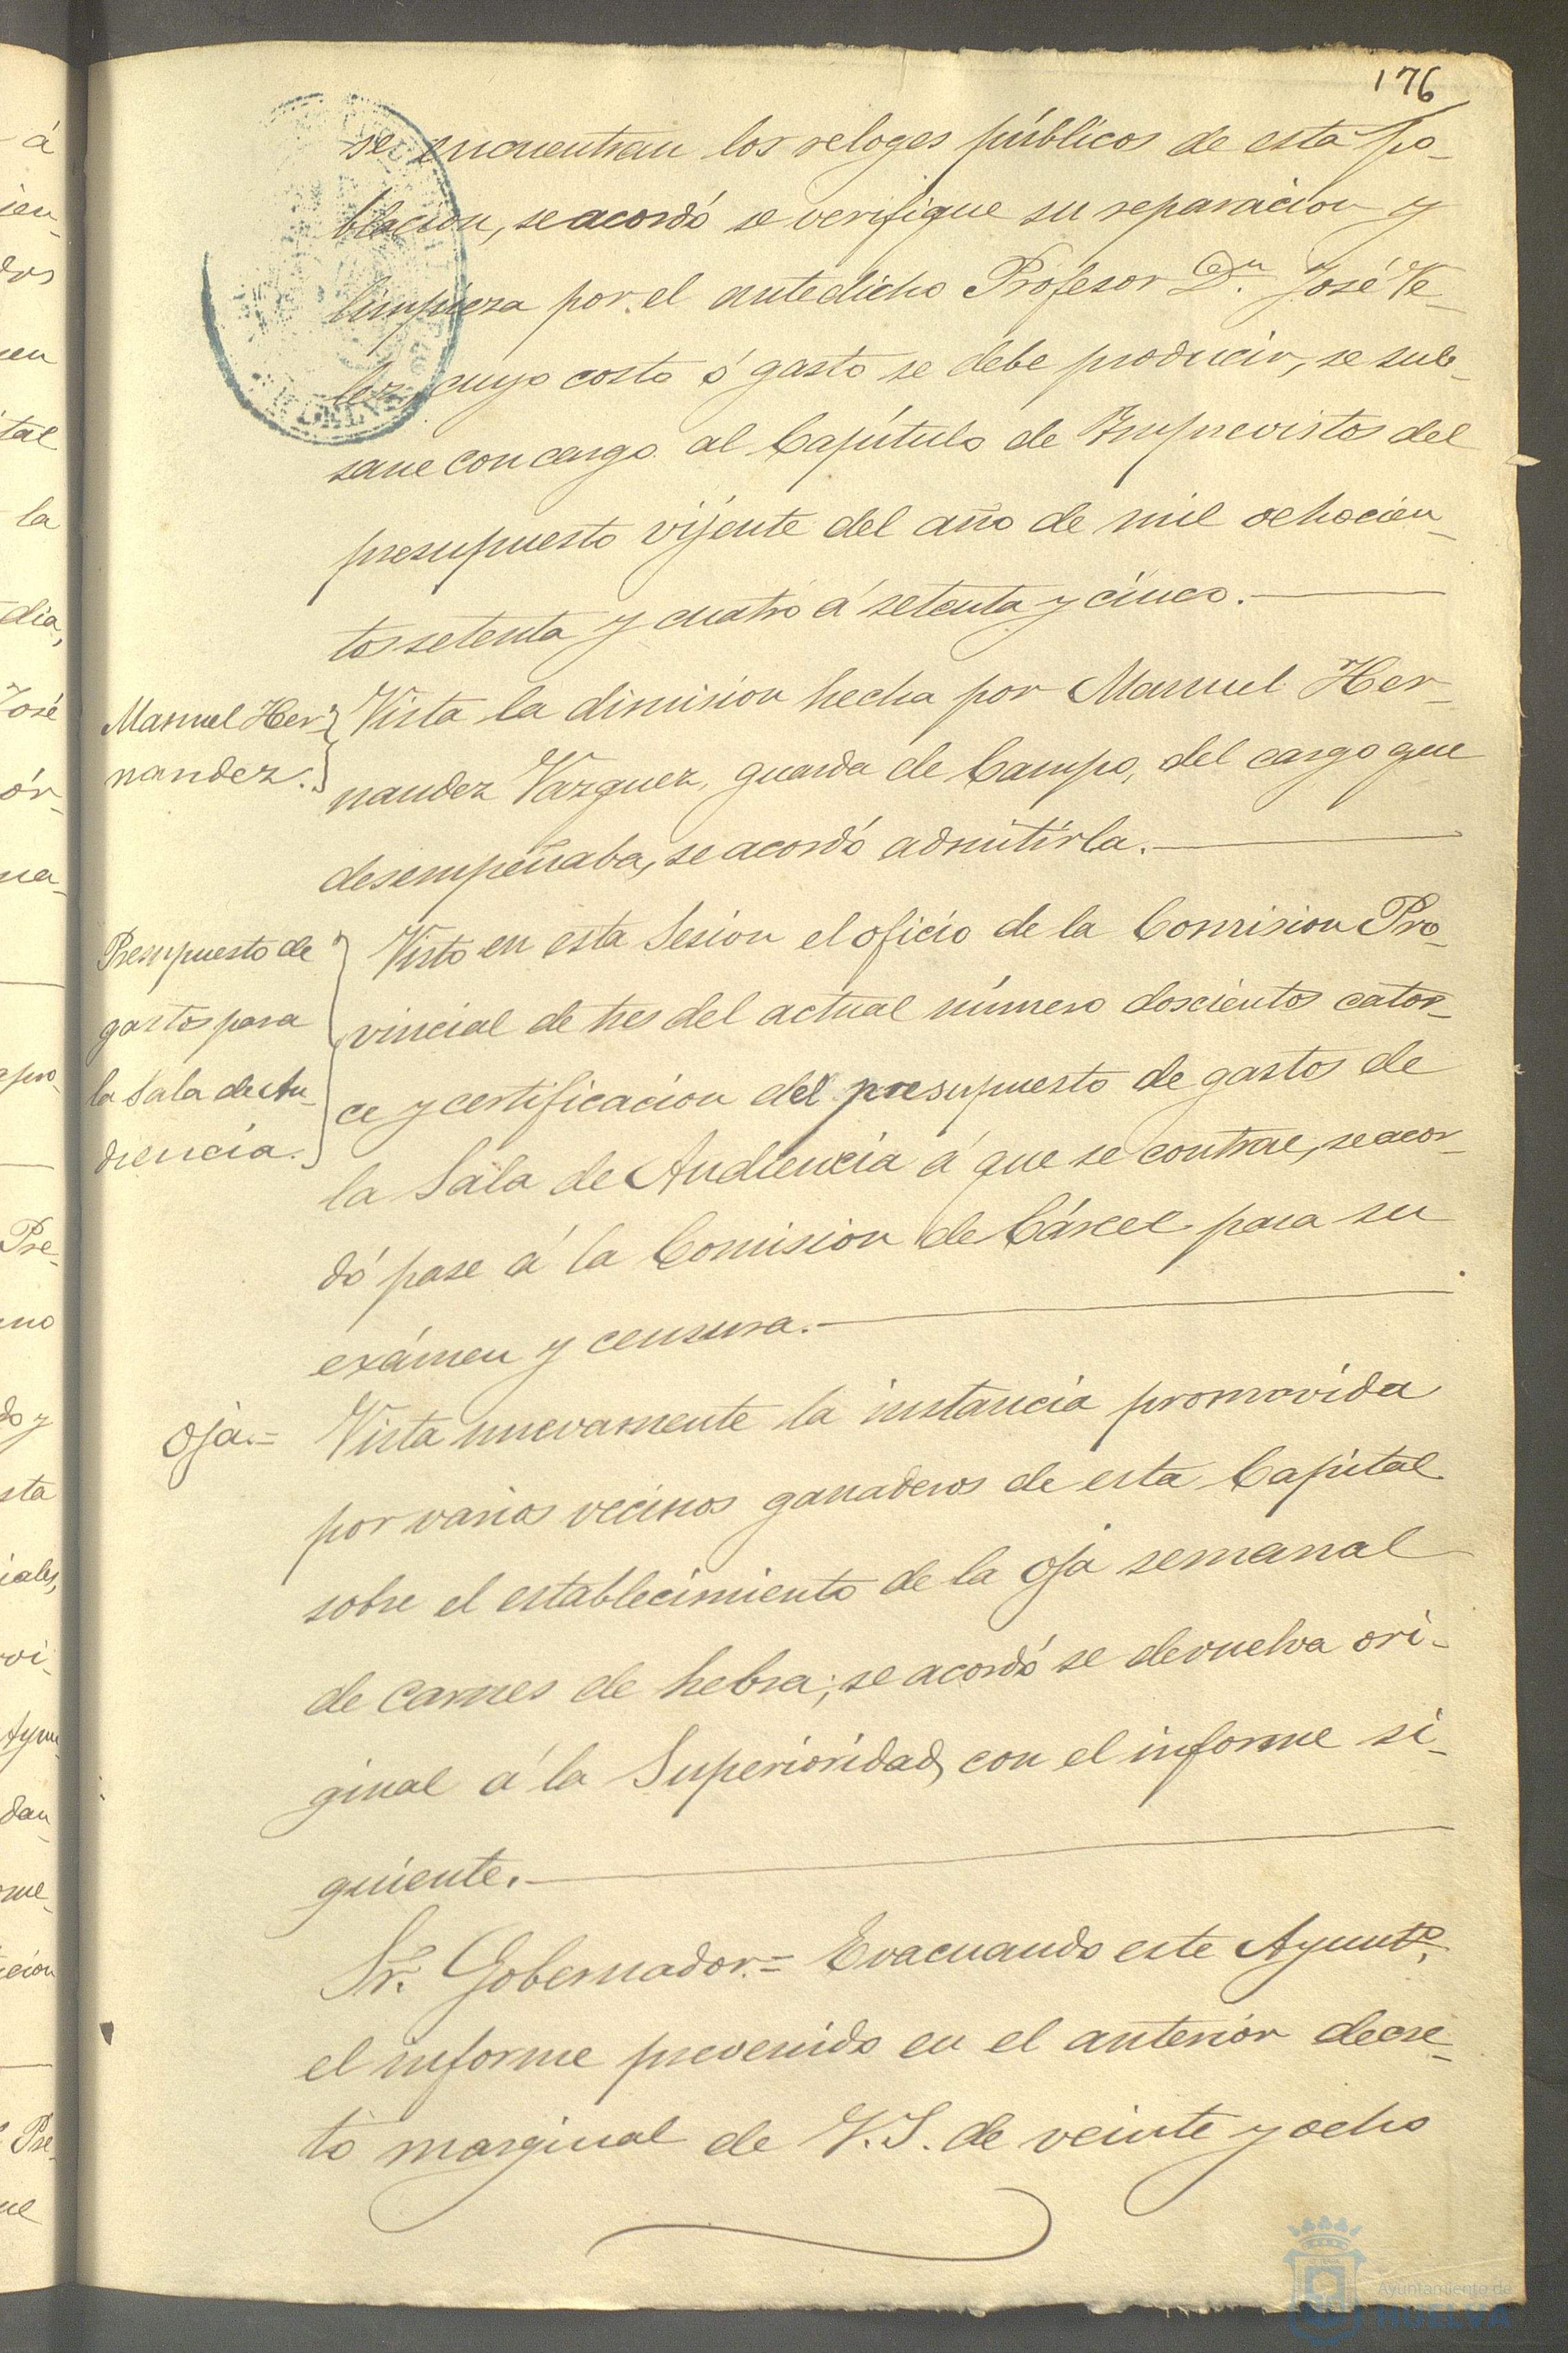 176
se encuentran los reloges públicos de esta po-
blacion, se acordó se verifique su reparacion y
limpieza por el antedicho Profesor Dn. José Ve-
lez, cuyo costo ó gasto se debe producir, se sub-
sane con cargo al Capítulo de Imprevistos del
presupuesto vijente del año de mil ochocien-
tos setenta y cuatro á setenta y cinco.
Manuel Her-
nandez.
Vista la dimision hecha por Manuel Her-
nandez Vazquez, guarda de Campo, del cargo que
desempeñaba, se acordó admitírla.
Presupuesto de
gastos para
la Sala de Au-
diencia.
Visto en esta Sesion el oficio de la Comision Pro-
vincial de tres del actual número doscientos cator-
ce y certificacion del presupuesto de gastos de
la Sala de Audiencia á que se contrae, se acor-
dó pase á la Comision de Cárcel para su
exámen y censura.
Oja.=
Vista nuevamente la instancia promovida
por varios vecinos ganaderos de esta Capital
sobre el establecimiento de la Oja semanal
de carnes de hebra; se acordó se devuelva ori-
ginal á la Superioridad, con el informe si-
guiente.
Sr. Gobernador.= Evacuando este Ayuntº.
el informe prevenido en el anterior decre-
to marginal de V.S. de veinte y ocho
Ayuntamiento de
HUELVA